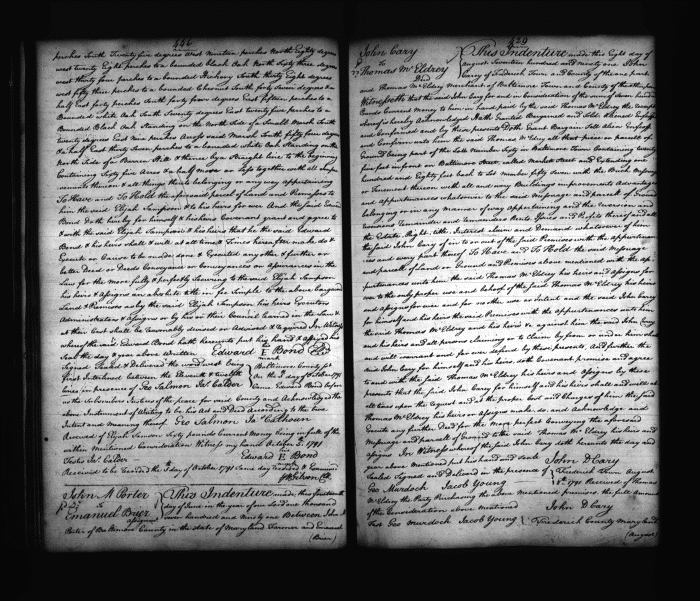 456
perches South Twenty five degrees West Nineteen perches North Eighty degrees
west twenty Eight perches to a bounded black Oak North Sixty three degrees
west thirty four perches to a bounded Hickory South thirty Eight degrees
west fifty three perches to a bounded Chesnut South forty Seven degrees &a
half East forty perches South forty four degrees East fifteen perches to a
Bounded white Oak South Twenty degrees East twenty five perches to a
Bounded Black Oak Standing on the North Side of a Small Marsh South
twenty degrees East Nine perches Across said Marsh South fifty four degrees
&a half East thirty Seven perches to a bounded white Oak Standing on the
North Side of a Barren Hill & thence by a Straight line to the beginning
Containing Sixty five Acres & a half more or less together with all improve
vements thereon & all things thereto belonging or in any way appertaining
To Have and To Hold the aforesaid parcel of Land and Premises to
him the said Elijah Sampson & to his heirs for ever And the said Edward
Bond doth hereby for himself & his heirs Covenant grant and agree to
& with the said Elijah Sampson & his heirs that he the said Edward
Bond & his heirs shall & will at all times & Times hereafter make do &
Execute or Cause to be made done & Executed any other & further or
better Deed or Deeds Conveyance or Conveyances or Assurances in the
Law for the more fully & perfectly Securing to the said Elijah Sampson
his heirs & assigns an absolute Estate in fee Simple to the above bargained
Land & Premises as by the said Elijah Sampson his heirs Executors
Administrators & Assigns or by his or their Council learned in the Law &
at their Cost shall be reasonably devised or advised & required In Witness
whereof the said Edward Bond hath hereunto put his hand & affixed his
Seal the day & year above written Edward E Bond
Signed Sealed & Delivered the word
first Interlined between the Eleventh & twelfth
in presence of Geo Salmon Jas Calder
mark
Baltimore County Sct
On the 3 day of October 1791
Came Edward Bond before
us the Subscribers Justices of the peace for said County and Acknowledged the
above Instrument of Writing to be his Act and Deed According to the true
Intent and meaning thereof. Geo Salmon Jas Calhoun
Received of Elijah Sampson Sixty pounds Current Money being in full of the
within Mentioned Consideration Witness my hand October 3: 1791
Teste Jas Calder
Edward E Bond
Received to be recorded the 3 day of October 1791 Same day recorded & Examined
Wm Gibson Clk
John M Porter
to
Emanuel Brier
This Indenture made this thirteenth
day of June in the year of our Lord one thousand
seven hundred and Ninety one Between John M
Porter of Baltimore County in the state of Maryland Farmer and Emanuel
(Brier)
459
John Cary
to
Thomas McEldrey
Deed
This Indenture made this Eight day of
august Seventeen hundred and Ninety one John
Cary of Frederick Town and County of the one part
and Thomas McEldrey Merchant of Baltimore Town and County of the other part
Witnesseth that the said John Cary for and in consideration of the sum of Seven hundred
Pounds Current money to him in hand paid by the said Thomas McEldrey the receipt
Ground being part of the Lotts Number forty in Baltimore Town Containing twenty
five feet in front on Baltimore Street, called Market Street and Extending one
hundred and Eighty feet back to Lott number fifty Seven with the Brick Messuage
or Tenement thereon with all and every Buildings improvements Advantages
and appurtenances whatsoever to the said Messuage and parcell of Ground
belonging or in any manner of way appertaining and the reversion and
reversions Remainder and Remainders Rents Issues and Profits thereof and all
the Estate Right title Interest claim and Demand whatsoever of him
the said John Cary of in to or out of the said Premises with the appurtenances
and every part thereof To Have and To Hold the said Messuage
and parcell of Land or Ground and Premises above mentioned with the ap-
purtenances unto him the said Thomas McEldrey his heirs and assigns for
ever to the only proper use and behoof of the said Thomas McEldrey his heirs
and assigns forever and for no other use or Intent and the said John Cary
for himself and his heirs the said Premises with the appurtenances unto him
the said Thomas McEldrey and his heirs & against him the said John Cary
and his heirs and all persons claiming or to claim by from or under him or them
and will warrant and for ever defend by these presents, And further the
said John Cary for himself and his heirs doth Covenant promise and agree
to and with the said Thomas McEldrey his heirs and assigns by these
presents that the said John Cary for himself and his heirs shall and will at
all times upon the request and at the proper Cost and Charges of him the said
Thomas McEldrey his heirs or Assigns make do, and Acknowledge and
Execute any further Deed for the More perfect Conveying the aforesaid
Messuage and parcell of Ground to the said Thomas McEldrey his heirs and
Assigns In Witness whereof the said John Cary doth hereunto the day and
year above mentioned put his hand and seale John D Cary
Sealed Signed and Delivered in the presence of
Geo Murdoch Jacob Young
Frederick Town August
8th 1791 Received of Thomas
McEldrey the Party Purchasing the above Mentioned premises the full amount
of the Consideration above mentioned John D Cary
Test Geo Murdoch Jacob Young
Frederick County Maryland
(August)